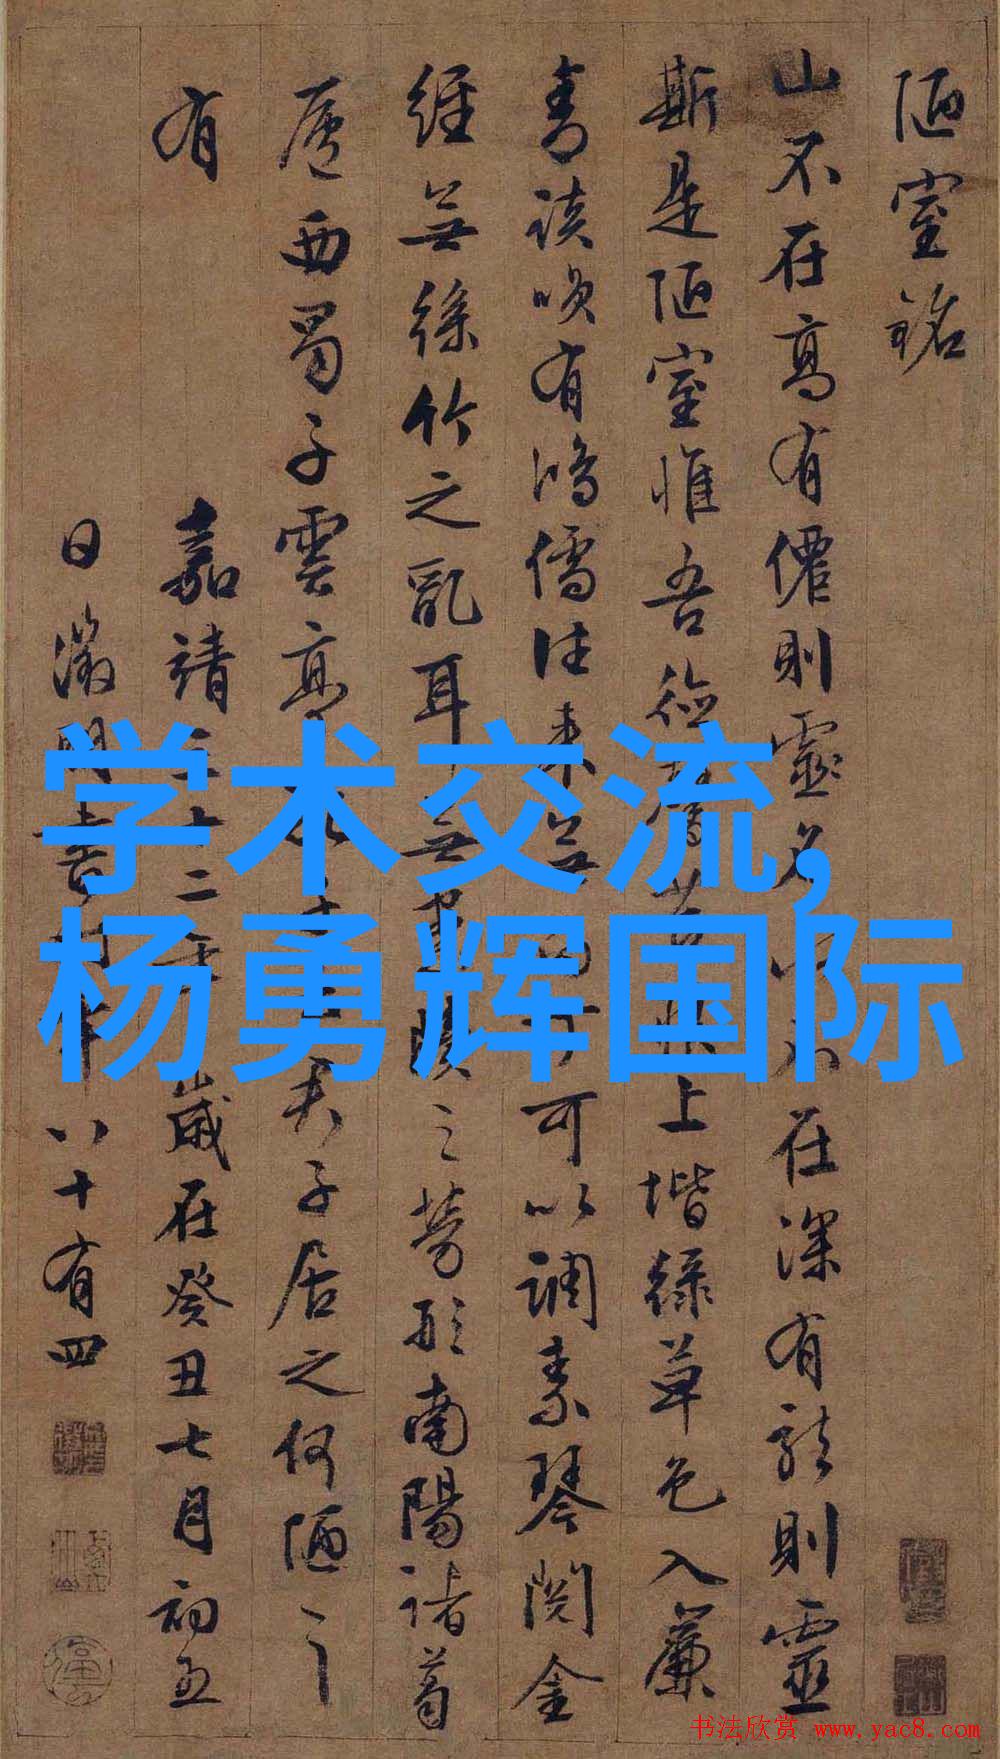 陋室銘
山不在高有僊則靈名不在深有龍則靈
斯是陋室惟吾德馨苔上堦綠草色入簾
青談唉有鴻儒往來無丁可以調素琴閱金
經無絲竹之亂耳無牘之勞形南陽諸葛
廬西蜀子雲亭子居之何陋之
有
嘉靖三十二年歲在癸丑七月初五
日徵明書時年八十有四
学术交流,
杨勇辉国际
书法欣赏 www.yac8.com